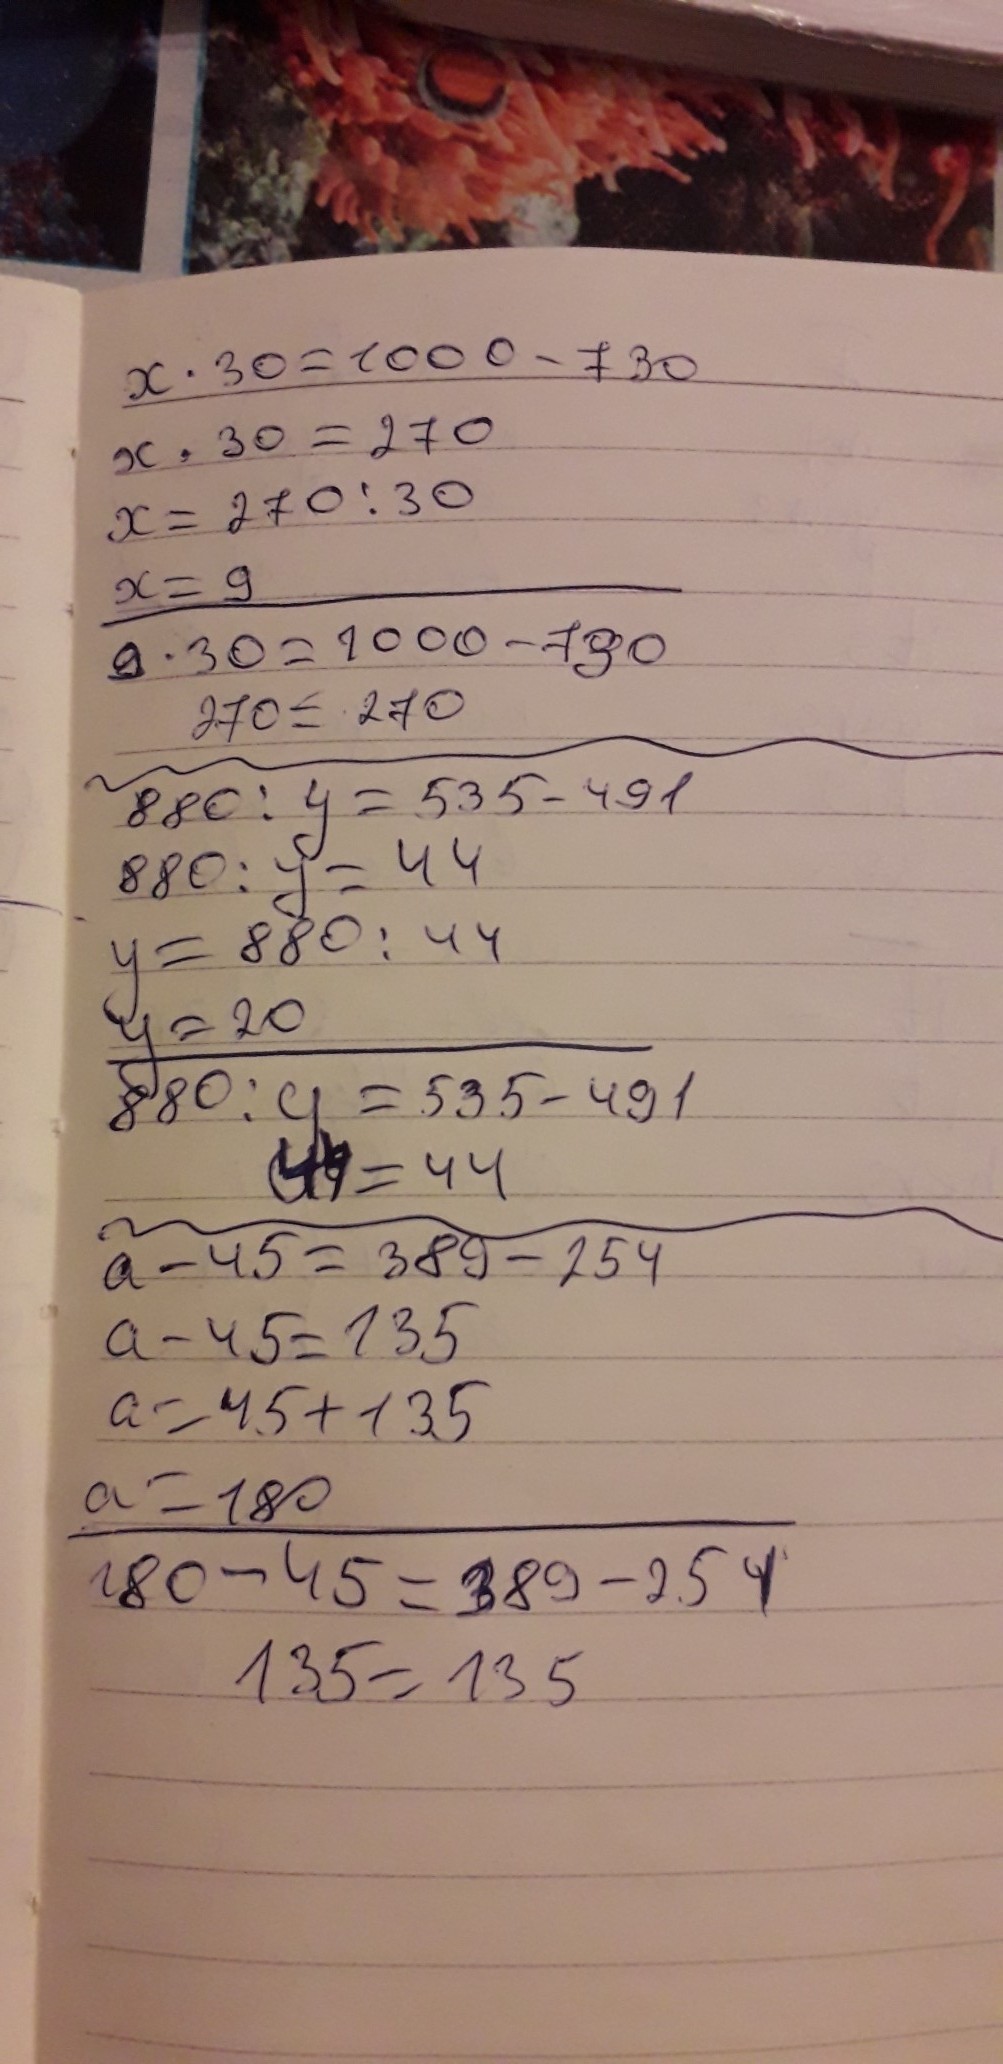 x · 30 = 1000 - 730
x · 30 = 270
x = 270 : 30
x = 9
9 · 30 = 1000 - 730
270 = 270
880 : y = 535 - 491
880 : y = 44
y = 880 : 44
y = 20
880 : y = 535 - 491
44 = 44
a - 45 = 389 - 254
a - 45 = 135
a = 45 + 135
a = 180
180 - 45 = 389 - 254
135 = 135